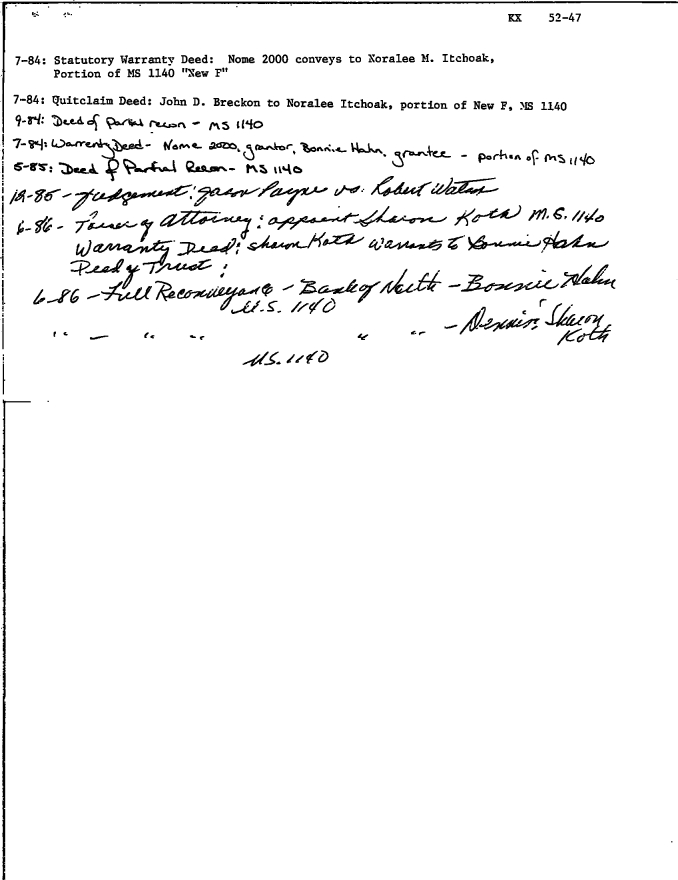 KX 52-47
7-84: Statutory Warranty Deed: Nome 2000 conveys to Noralee M. Itchoak,
Portion of MS 1140 "New F"
7-84: Quitclaim Deed: John D. Breckon to Noralee Itchoak, portion of New F, MS 1140
9-84: Deed of Partial recon - MS 1140
7-84: Warrenty Deed - Nome 2000, grantor, Bonnie Hahn, grantee - portion of MS 1140
5-85: Deed of Partial Recon - MS 1140
12-85 - Judgement: Jason Payne vs. Robert
6-86 - Power of Attorney: appoint Sharon Koth M.S. 1140
Warranty Deed: Sharon Koth warrants to Bonnie Hahn
Deed of Trust:
6-86 - Full Reconveyance - Bank of North - Bonnie Hahn
M.S. 1140
" - " " " " - Dennis, Sharon
Koth
MS. 1140